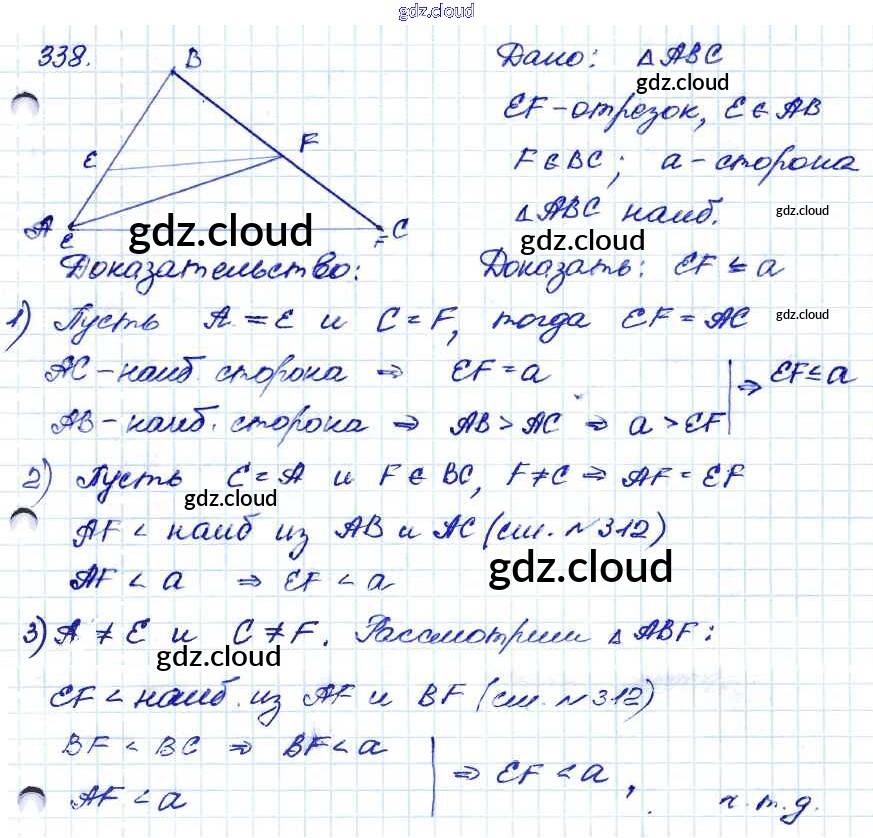 gdz.cloud
338.
B
E
F
A
E
F
C
Дано: △ABC
gdz.cloud
EF - отрезок, E ∈ AB
F ∈ BC; a - сторона
△ABC наиб. gdz.cloud
gdz.cloud
gdz.cloud
Доказательство:
Доказать: EF ≤ a
1) Пусть A = E и C = F, тогда EF = AC gdz.cloud
AC - наиб. сторона ⇒ EF = a
AB - наиб. сторона ⇒ AB > AC ⇒ a > EF | ⇒ EF ≤ a
2) Пусть E = A и F ∈ BC, F ≠ C ⇒ AF = EF
gdz.cloud
AF < наиб из AB и AC (см. №312)
AF < a ⇒ EF < a
gdz.cloud
3) A ≠ E и C ≠ F. Рассмотрим △ABF:
gdz.cloud
EF < наиб. из AF и BF (см. №312)
BF < BC ⇒ BF < a
AF < a | ⇒ EF < a, ч.т.д.